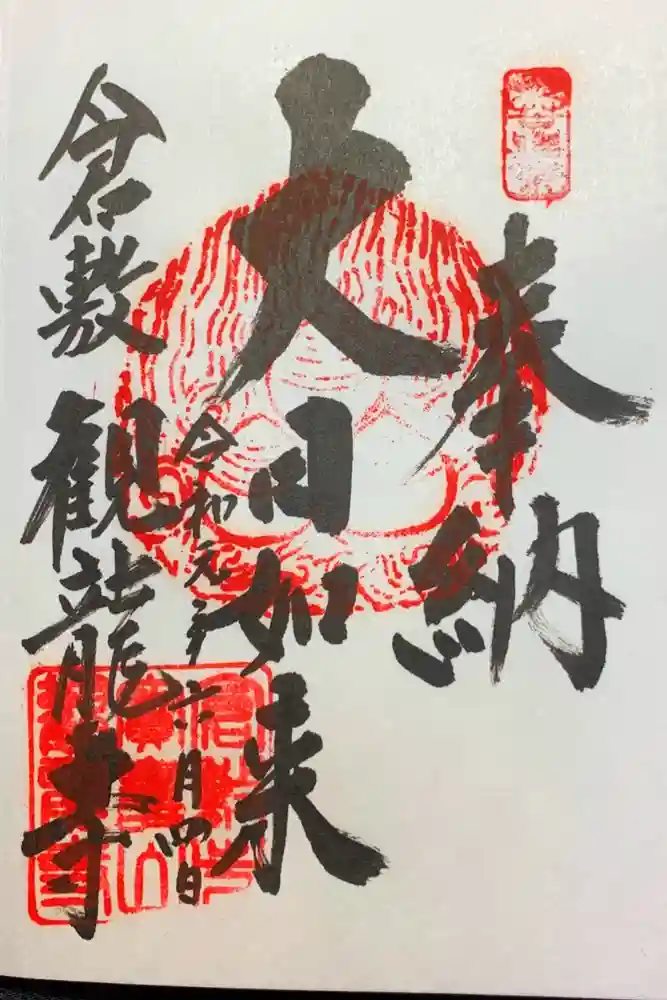 奉納
大日如来
令和元年六月四日
倉敷 観龍寺